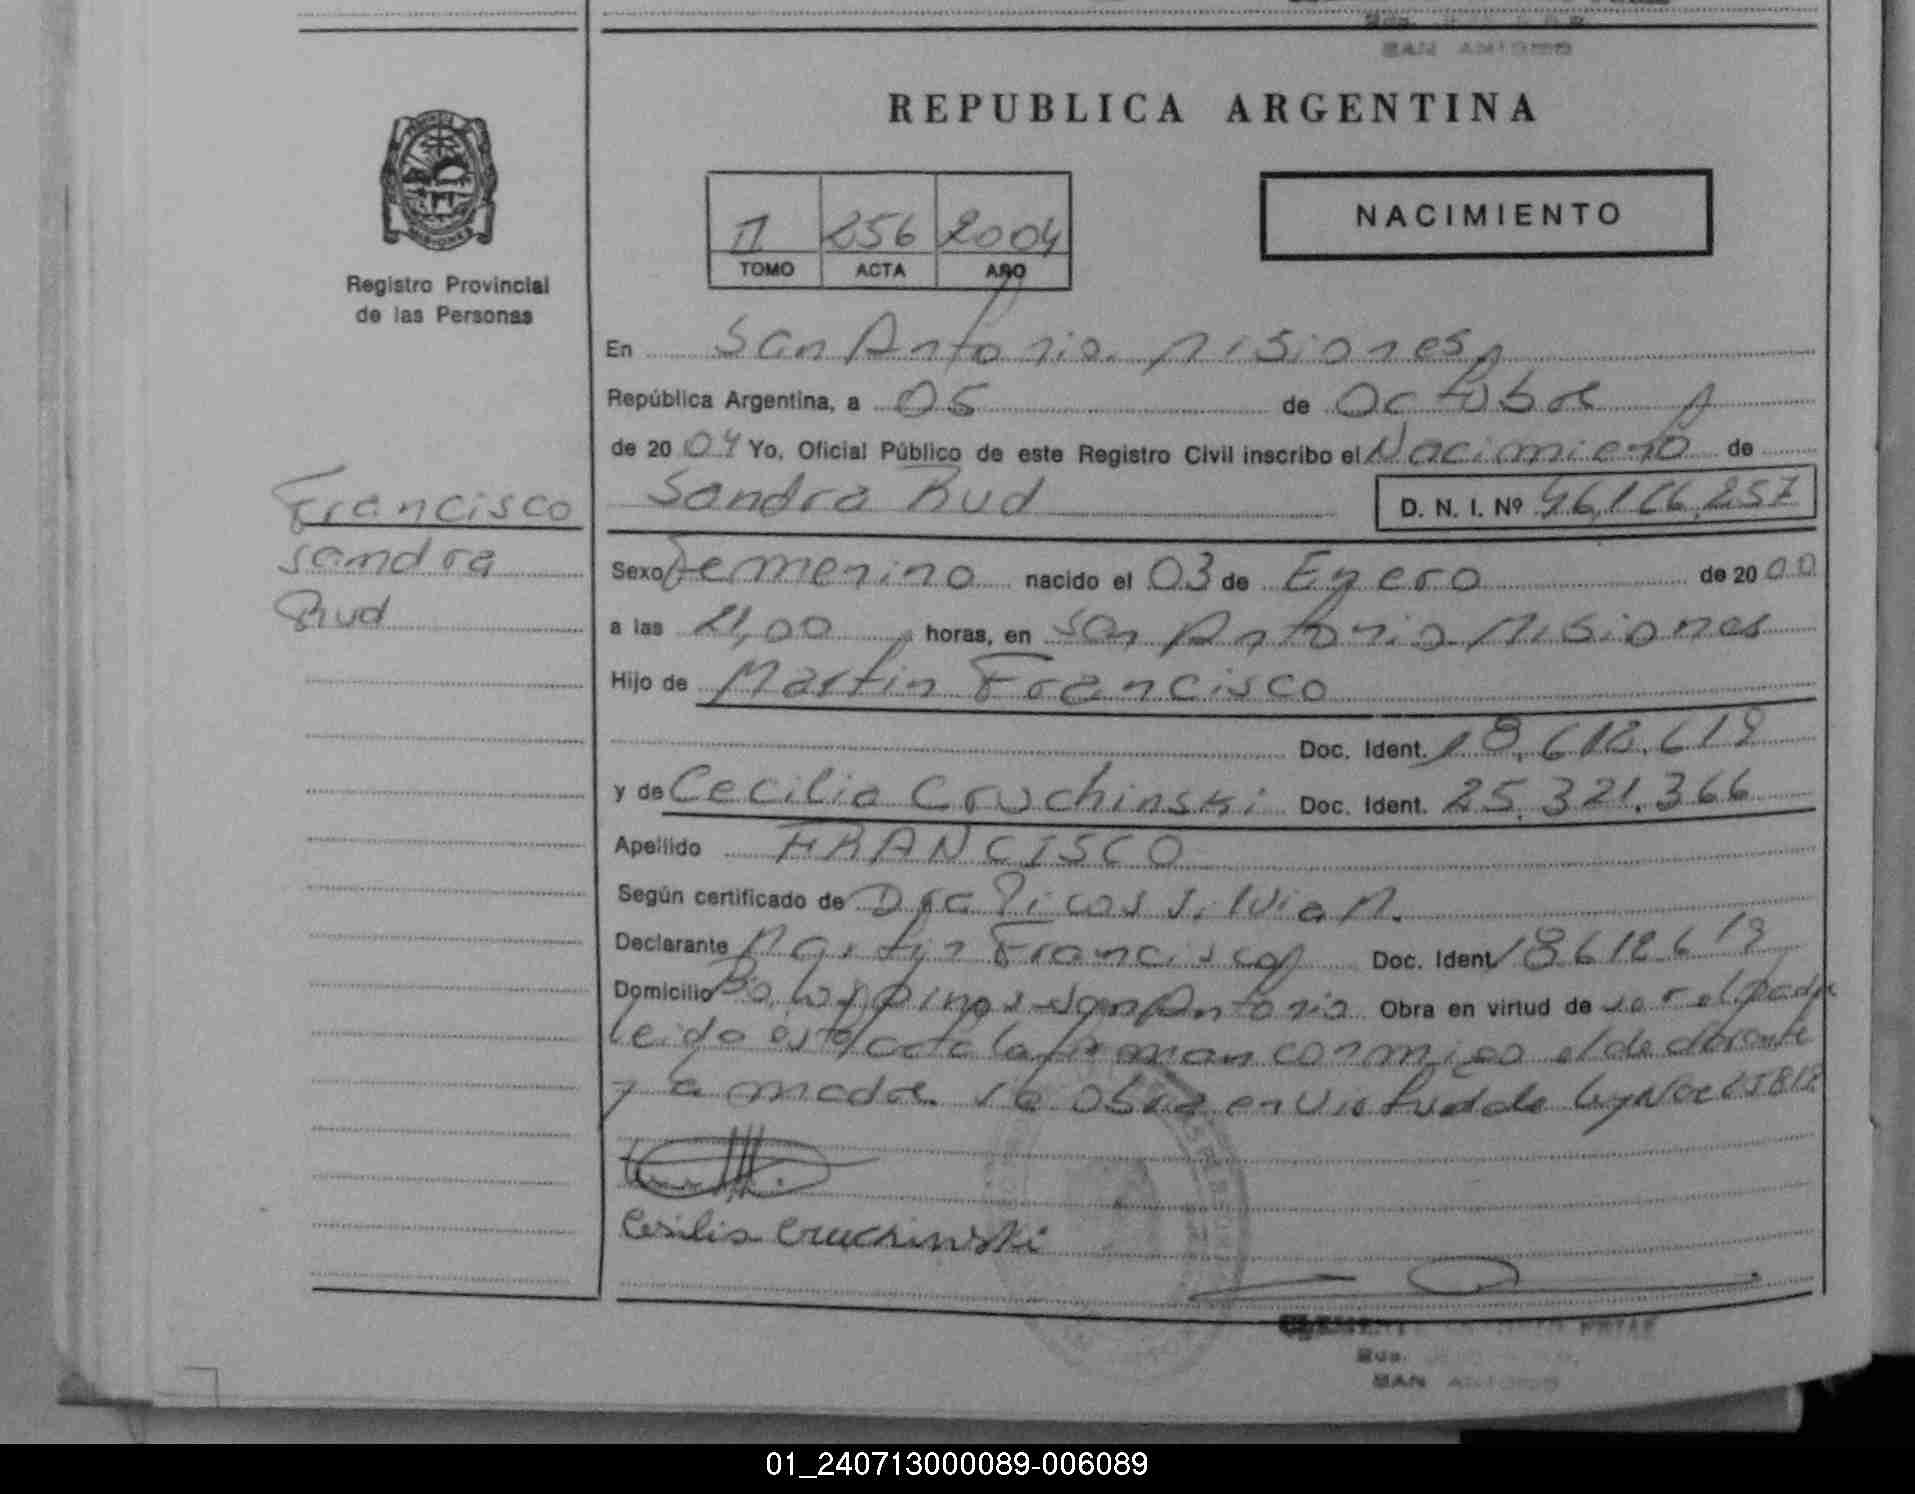 SAN ANTONIO
REPUBLICA ARGENTINA
NACIMIENTO
II 256 2004
TOMO ACTA AÑO
Registro Provincial
de las Personas
En San Antonio Misiones
República Argentina, a 05 de Octubre
de 2004 Yo, Oficial Público de este Registro Civil inscribo el Nacimiento de
Francisco
Sandra Rud
Sandra Rud D. N. I. Nº 46.166.257
Sexo Femenino nacido el 03 de Enero de 2000
a las 21,00 horas, en San Antonio Misiones
Hijo de Martin Francisco
Doc. Ident. 18.612.619
y de Cecilia Cruchinski Doc. Ident. 25.321.366
Apellido FRANCISCO
Según certificado de Dra Picos Silvia M.
Declarante Martin Francisco Doc. Ident. 18612619
Domicilio San Antonio Obra en virtud de ser el padre
leido esta acta la firman conmigo el declarante
y la madre se obra en virtud de Ley Nº 25819
Cesilia Cruchinski
SAN ANTONIO
01_240713000089-006089